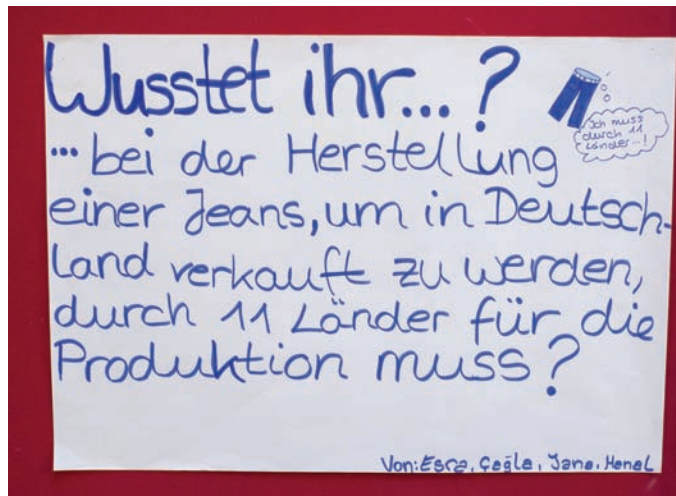 Wusstet ihr...?
Ich muss
durch 11
Länder...!
... bei der Herstellung
einer Jeans, um in Deutsch-
land verkauft zu werden,
durch 11 Länder für die
Produktion muss?
Von: Esra, Çağla, Jana,